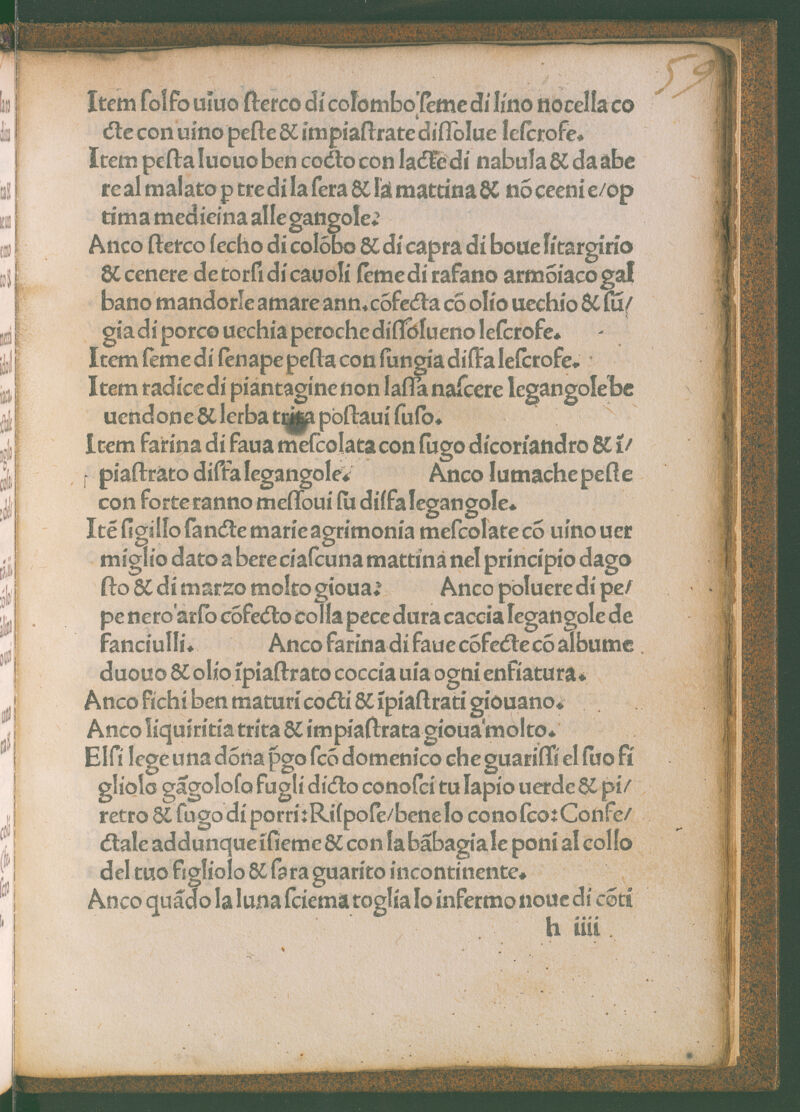 59
Item ſolfo uiuo ſterco di colombo ſeme di lino nocella co
cte con uino peſte & impiaſtrate diſſolue leſcrofe.
Item peſta luouo ben cocto con lacte di nabula & da abe
re al malato p tre di la ſera & la mattina & nō ceeni e/op
tima medicina alle gangole?
Anco ſterco ſecho di colōbo & di capra di boue litargirio
& cenere de torſi di cauoli ſeme di rafano armōiaco gal
bano mandorle amare ann. cōfecta cō olio uechio & ſū/
gia di porco uechia peroche diſſolueno leſcrofe.
Item ſeme di ſenape peſta con ſungia diſfa leſcrofe.
Item radice di piantagine non laſſa naſcere legangole be
uendone & lerba trita poſtaui ſuſo.
Item farina di faua meſcolata con ſugo dicoriandro & ī/
piaſtrato diſfa legangole. Anco lumache peſte
con forte ranno meſſoui ſu diſfa legangole.
Itē ſigillo ſancte marie agrimonia meſcolate cō uino uer
miglio dato a bere ciaſcuna mattina nel principio dago
ſto & di marzo molto gioua? Anco poluere di pe/
pe nero arſo cōfecto colla pece dura caccia legangole de
fanciulli. Anco farina di faue cōfecte cō albume
duouo & olio īpiaſtrato coccia uia ogni enfiatura.
Anco fichi ben maturi cocti & īpiaſtrati giouano.
Anco liquiritia trita & impiaſtrata gioua molto.
Elſi lege una dōna p̄go ſcō domenico che guariſſi el ſuo fi
gliolo gāgoloſo fugli dicto conoſci tu lapio uerde & pi/
retro & ſugo di porri:Riſpoſe/bene lo conoſco:Confe/
ctale addunque iſieme & con la bābagia le poni al collo
del tuo figliolo & ſara guarito incontinente.
Anco quādo la luna ſciema toglia lo infermo noue di cōti
h iiii